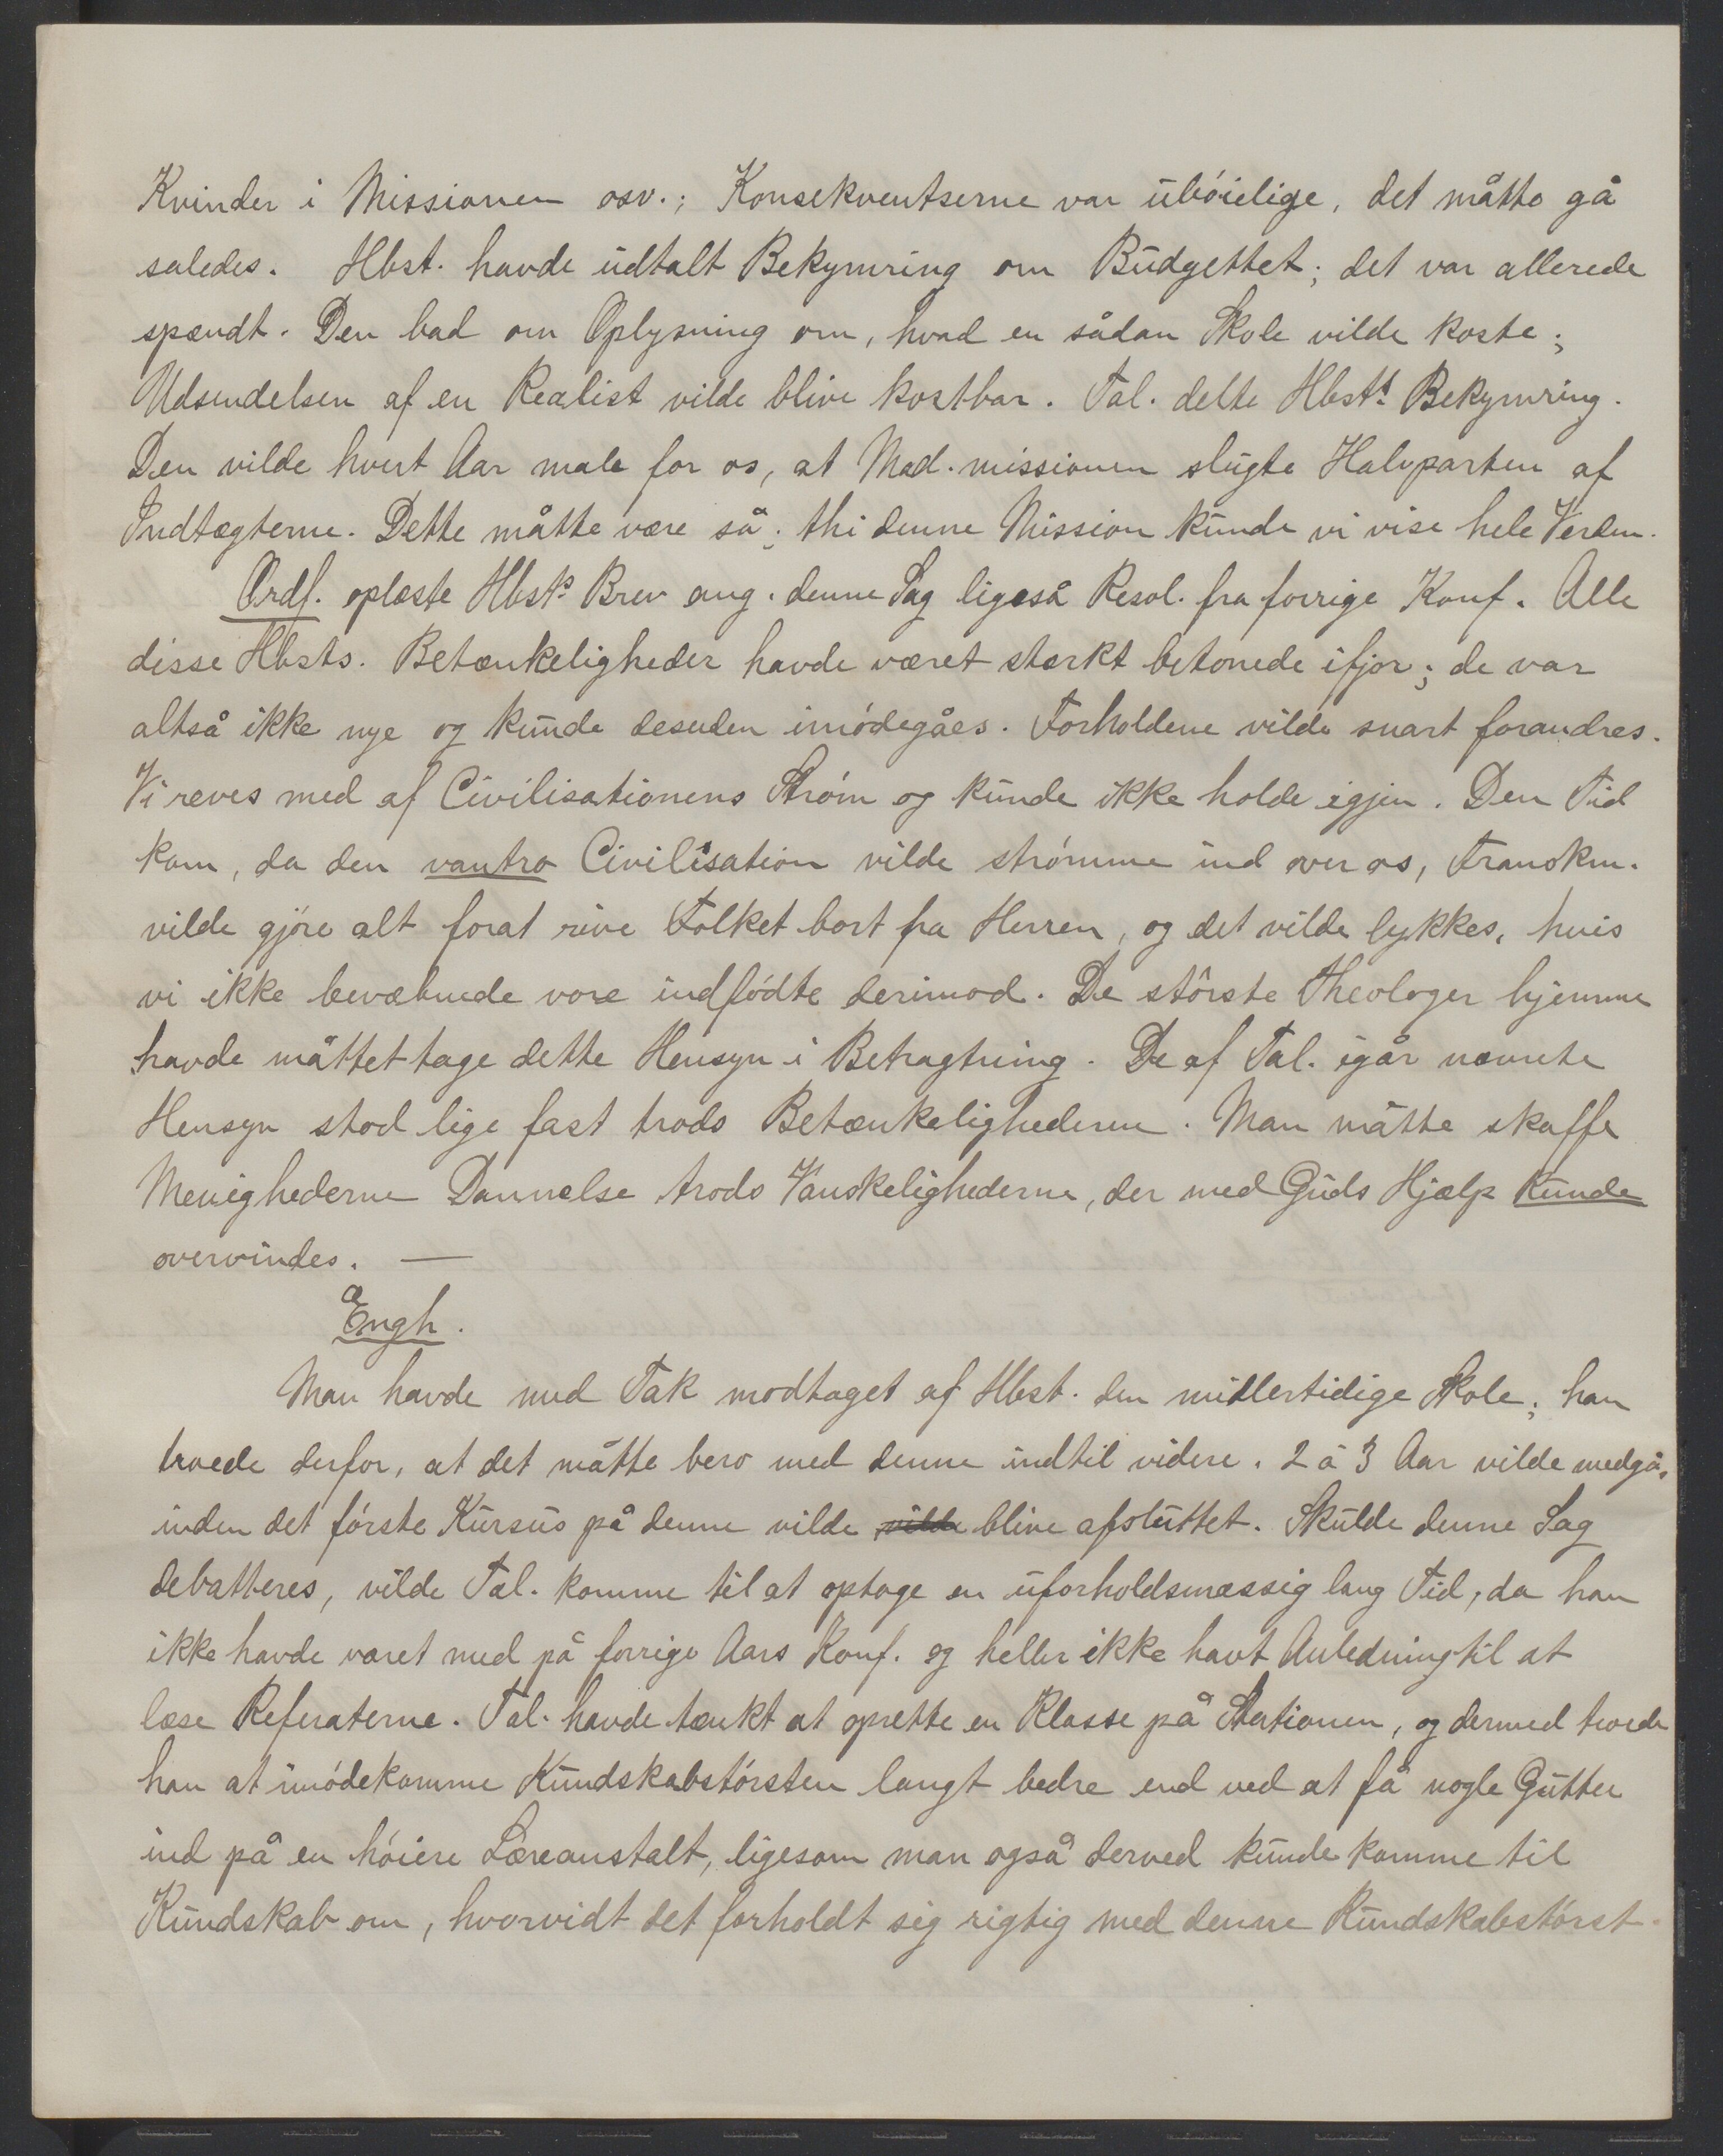 Kvinder i Missionen osv.; Konsekventserne var ubóielige, det måtte gå
saledes. Hbst. havde udtalt Bekymring om Budgettet; det var allerede
spændt. Den bad om Oplysning om, hvad en sådan Skole vilde koste;
Udsendelsen af en Realist vilde blive kostbar. Tal. delte Hbsts. Bekymring.
Den vilde hvert Aar male for os, at Mad. missionen slugte Halvparten af
Indtægterne. Dette måtte være så; thi denne Mission kunde vi vise hele Verden.
Ordf. oplæste Hbsts Brev ang. denne Sag ligeså Resol. fra forrige Konf. Alle
disse Hbsts. Betænkeligheder havde været stærkt betonede ifjor; de var
altså ikke nye og kunde desuden imódegåes. Forholdene vilde snart forandres.
Vi reves med af Civilisationens Stróm og kunde ikke holde igjen. Den Tid
kom, da den vantro Civilisation vilde strómme ind over os, Franskm.
vilde gjóre alt forat rive Folket bort fra Herren, og det vilde lykkes, hvis
vi ikke bevæbnede vore indfódte derimod. De stórste Theologer hjemme
havde måttet tage dette Hensyn i Betragtning. De af Tal. igår nævnte
Hensyn stod lige fast trods Betænkelighederne. Man måtte skaffe
Menighederne Dannelse trods Vanskelighederne, der med Guds Hjælp kunde
overvindes. —
Engh.
Man havde med Tak modtaget af Hbst. den midlertidige Skole; han
troede derfor, at det måtte bero med denne indtil videre. 2 à 3 Aar vilde medgå,
inden det fórste Kursus på denne vilde vilde blive afsluttet. Skulde denne Sag
debatteres, vilde Tal. komme til at optage en uforholdsmæssig lang Tid, da han
ikke havde været med på forrige Aars Konf. og heller ikke havt Anledning til at
læse Referaterne. Tal. havde tænkt at oprette en Klasse på Stationen, og dermed troede
han at imódekomme Kundskabstórsten langt bedre end ved at få nogle Gutter
ind på en hóiere Læreanstalt, ligesom man også derved kunde komme til
Kundskab om, hvorvidt det forholdt sig rigtig med denne Kundskabstórst.